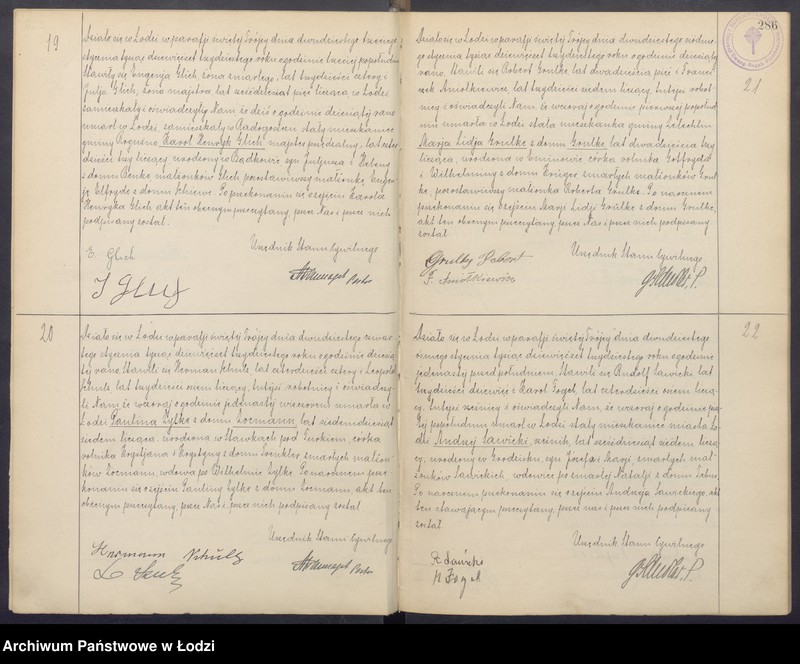 19
Działo się w Łodzi w parafji świętej Trójcy dnia dwudziestego trzeciego
stycznia tysiąc dziewięćset trzydziestego roku o godzinie trzeciej popołudniu
Stawiły się Eugenja Glich, żona zmarłego, lat trzydzieści cztery i
Julja Glich, żona majstra, lat sześćdziesiąt pięć licząca, w Łodzi
zamieszkały i oświadczyły Nam, że dziś o godzinie dziewiątej rano
umarł w Łodzi, zamieszkały w Radogoszczu stały mieszkaniec
gminy Rogoźno Karol Henryk Glich majster przędzalny, lat
dzieści trzy liczący, urodzony w syn Juljusza i Heleny
z domu Penke małżonków Glich, pozostawiwszy małżonkę Euge-
ję Elfrydę z domu Po przekonaniu się o zejściu Karola
Henryka Glich akt ten obecnym przeczytany, przez Nas i przez nich
podpisany został.
Urzędnik Stanu Cywilnego
E. Glich
J Glich
Pastor
20
Działo się w Łodzi w parafji świętej Trójcy dnia dwudziestego
tego stycznia tysiąc dziewięćset trzydziestego roku o godzinie dziewią-
tej rano. Stawili się Herman Schultz lat czterdzieści cztery i Leopold
Schultz, lat trzydzieści osiem liczący, tutejsi robotnicy i oświadczy-
li Nam, że wczoraj o godzinie jedenastej wieczorem umarła w
Łodzi Paulina Zylke z domu Locmann, lat siedemdziesiąt
siedem licząca, urodzona w Sławkach pod Turkiem, córka
rolnika Krystjana i Krystyny z domu Winkler, zmarłych małżon-
ków Locmann, wdowa po Wilhelmie Zylke. Po naocznem prze-
konaniu się o zejściu Pauliny Zylke z domu Locmann, akt ten
obecnym przeczytany, przez Nas i przez nich podpisany został
Urzędnik Stanu Cywilnego
Hermann Schultz
L Schultz
Pastor
286
21
Działo się w Łodzi w parafji świętej Trójcy dnia dwudziestego siódme-
go stycznia tysiąc dziewięćset trzydziestego roku o godzinie dziewiątej
rano. Stawili się Robert Grulke, lat dwadzieścia pięć i Franci-
szek Amołkiewicz, lat trzydzieści siedem liczący, tutejsi robot-
nicy i oświadczyli Nam, że wczoraj o godzinie pierwszej popołud-
niu umarła w Łodzi stała mieszkanka gminy
Marja Lidja Grulke z domu Grulke, lat dwadzieścia trzy
licząca, urodzona w Eminowie córka rolnika Gottfryda
i Wilhelminy z domu Krüger zmarłych małżonków Grul-
ke, pozostawiwszy małżonka Roberta Grulke. Po naocznem
przekonaniu się o zejściu Marji Lidji Grulke z domu Grulke,
akt ten obecnym przeczytany, przez Nas i przez nich podpisany
został
Urzędnik Stanu Cywilnego
Grulke Robert
F. Amołkiewicz
22
Działo się w Łodzi w parafji świętej Trójcy dnia dwudziestego
ósmego stycznia tysiąc dziewięćset trzydziestego roku o godzinie
jedenastej przed południem. Stawili się Rudolf Sawicki lat
trzydzieści dziewięć i Karol Fogel, lat czterdzieści osiem liczą-
cy, tutejsi rzeźnicy i oświadczyli Nam, że wczoraj o godzinie
popołudniu umarł w Łodzi stały mieszkaniec miasta Ło-
dzi Andrzej Sawicki, rzeźnik, lat sześćdziesiąt siedem liczą-
cy, urodzony w Grodzisku, syn Józefa i Marji, zmarłych mał-
żonków Sawickich, wdowiec po zmarłej Natalji z domu
Po naocznem przekonaniu się o zejściu Andrzeja Sawickiego, akt
ten stawającym przeczytany, przez nas i przez nich podpisany
został.
Urzędnik Stanu Cywilnego
R Sawicki
K Fogel
Archiwum Państwowe w Łodzi